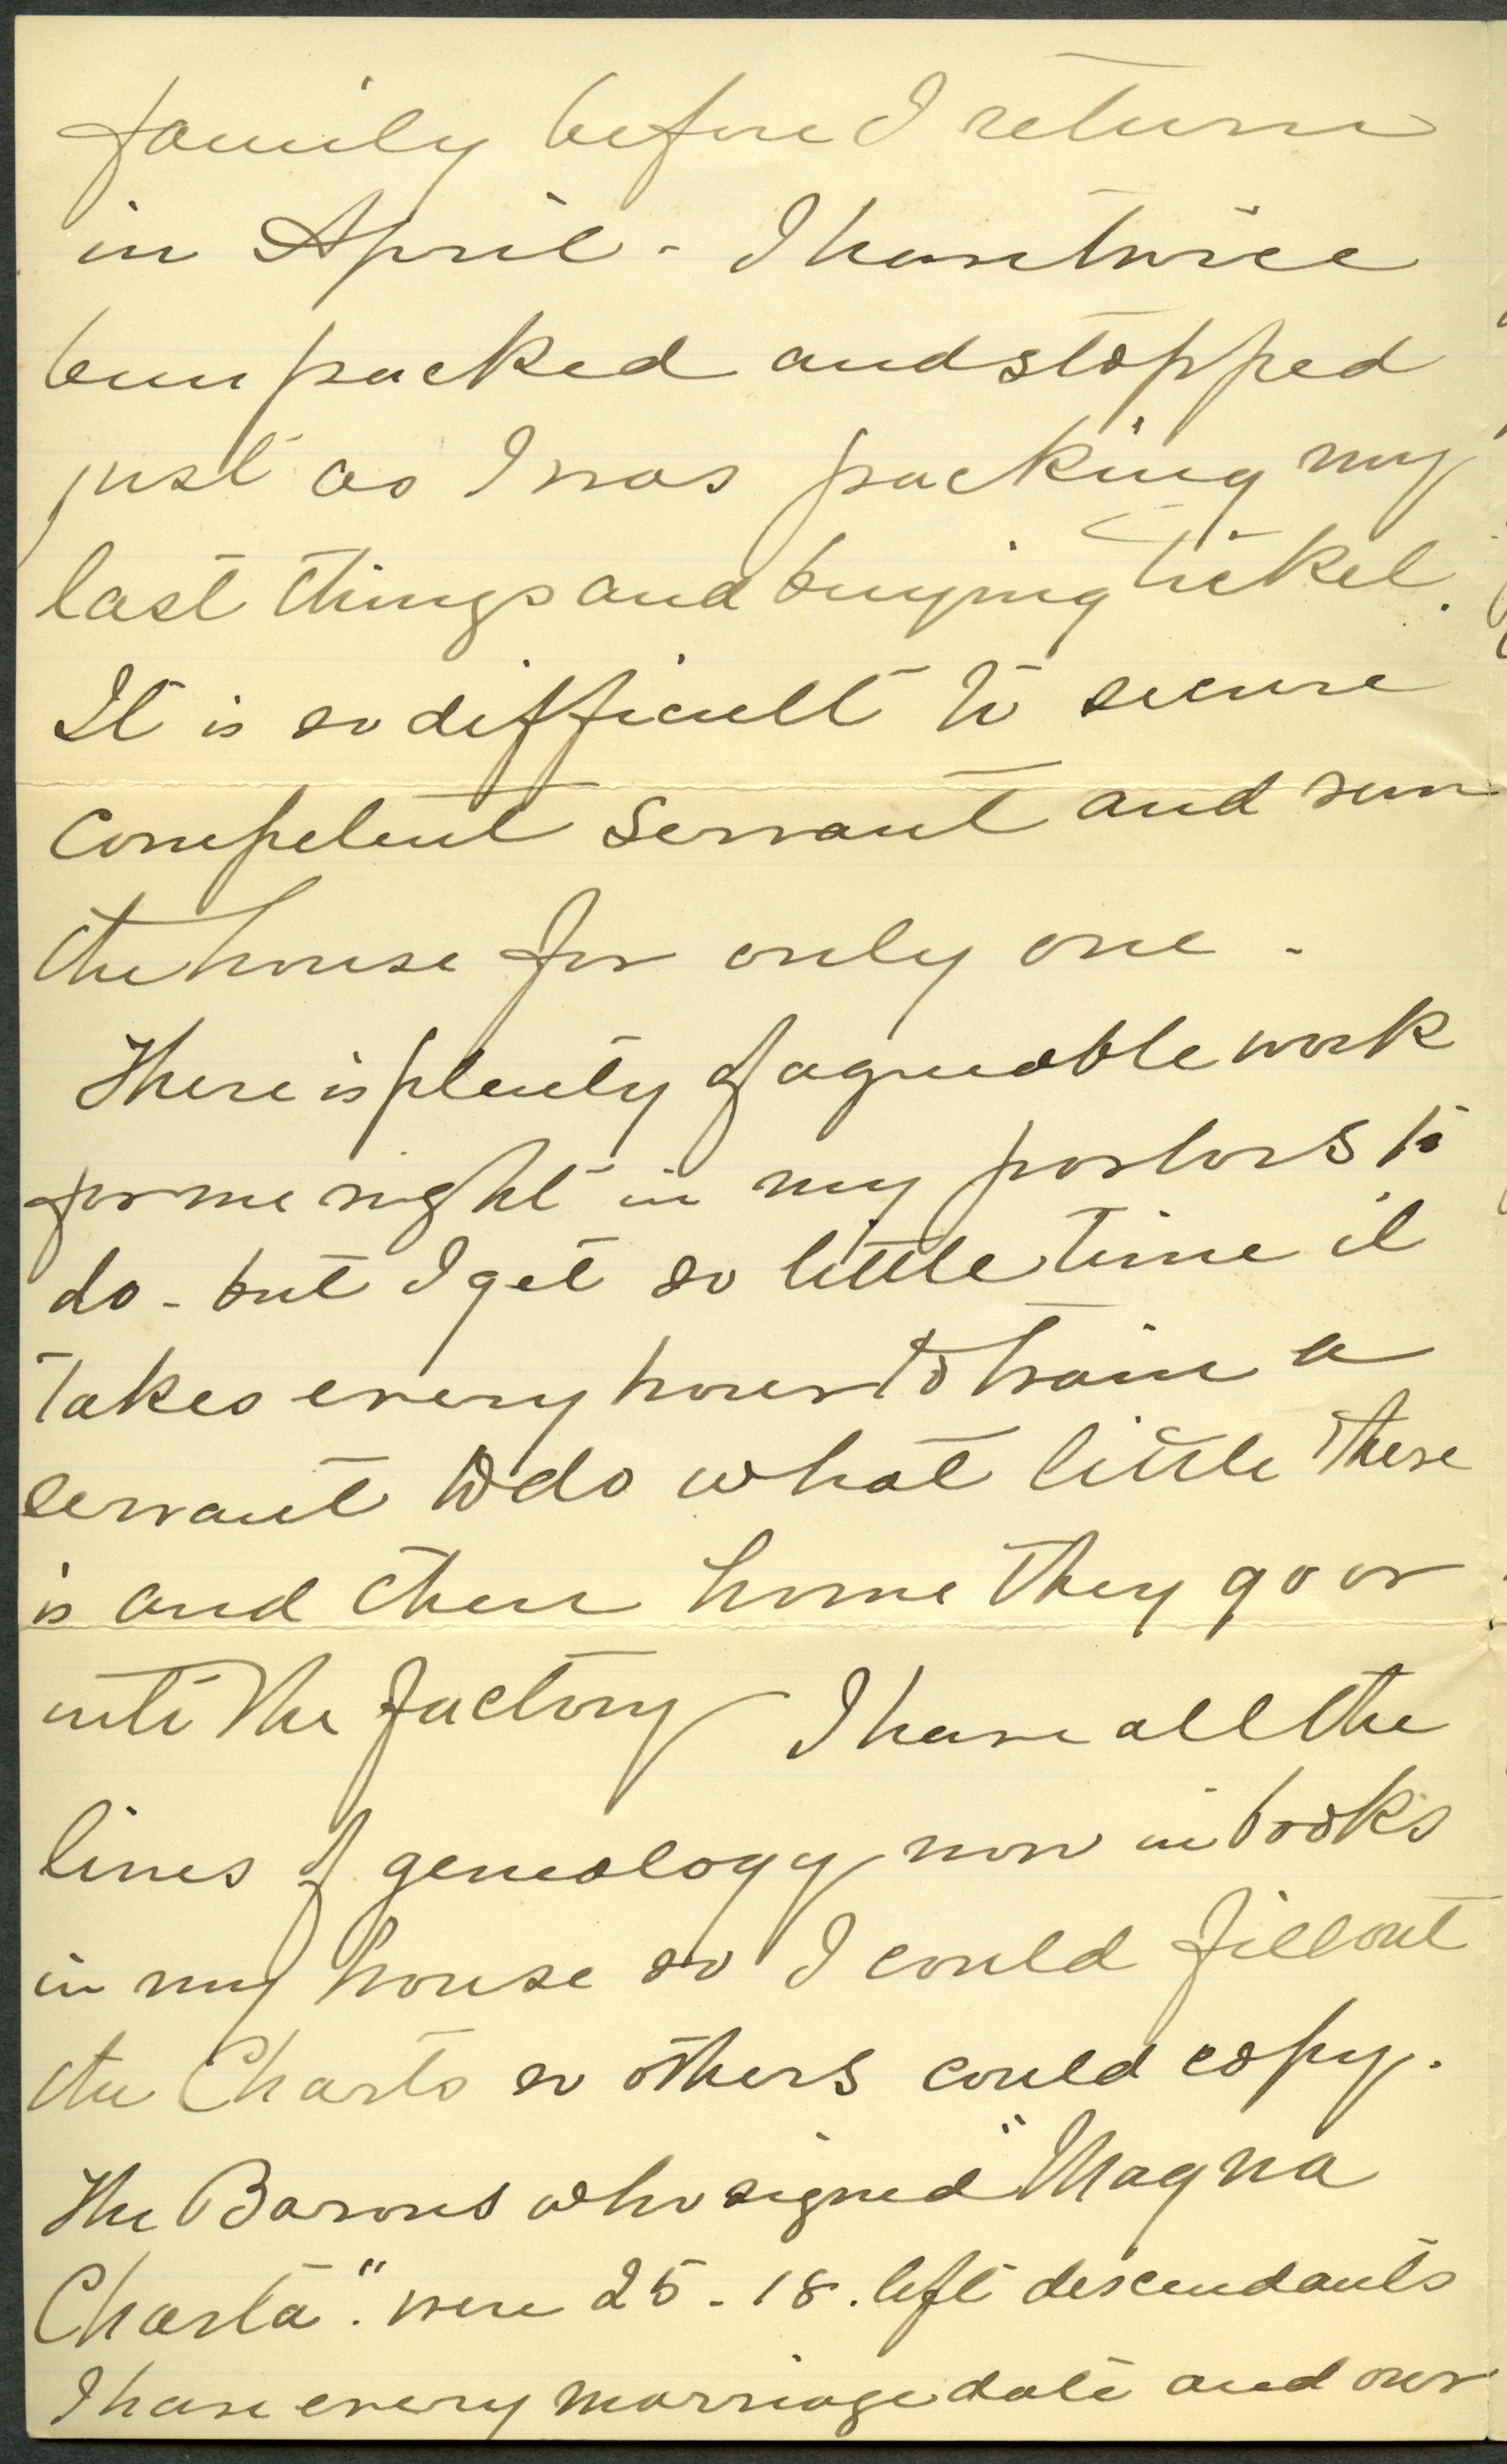 family before I return
in April - I have twice
been packed and stopped
just as I was packing my
last things and buying ticket.
It is so difficult to secure
competent servant and run
the house for only one -
There is plenty of agreeable work
for me right in my parlors to
do - but I get so little time it
takes every hour to train a
servant to do what little there
is and then home they go or
into the factory I have all the
lines of geneology now in books
in my house so I could fill out
the Charts so others could copy.
The Barons who signed "Magna
Charta". were 25 - 18. left descendants
I have every marriage date and our